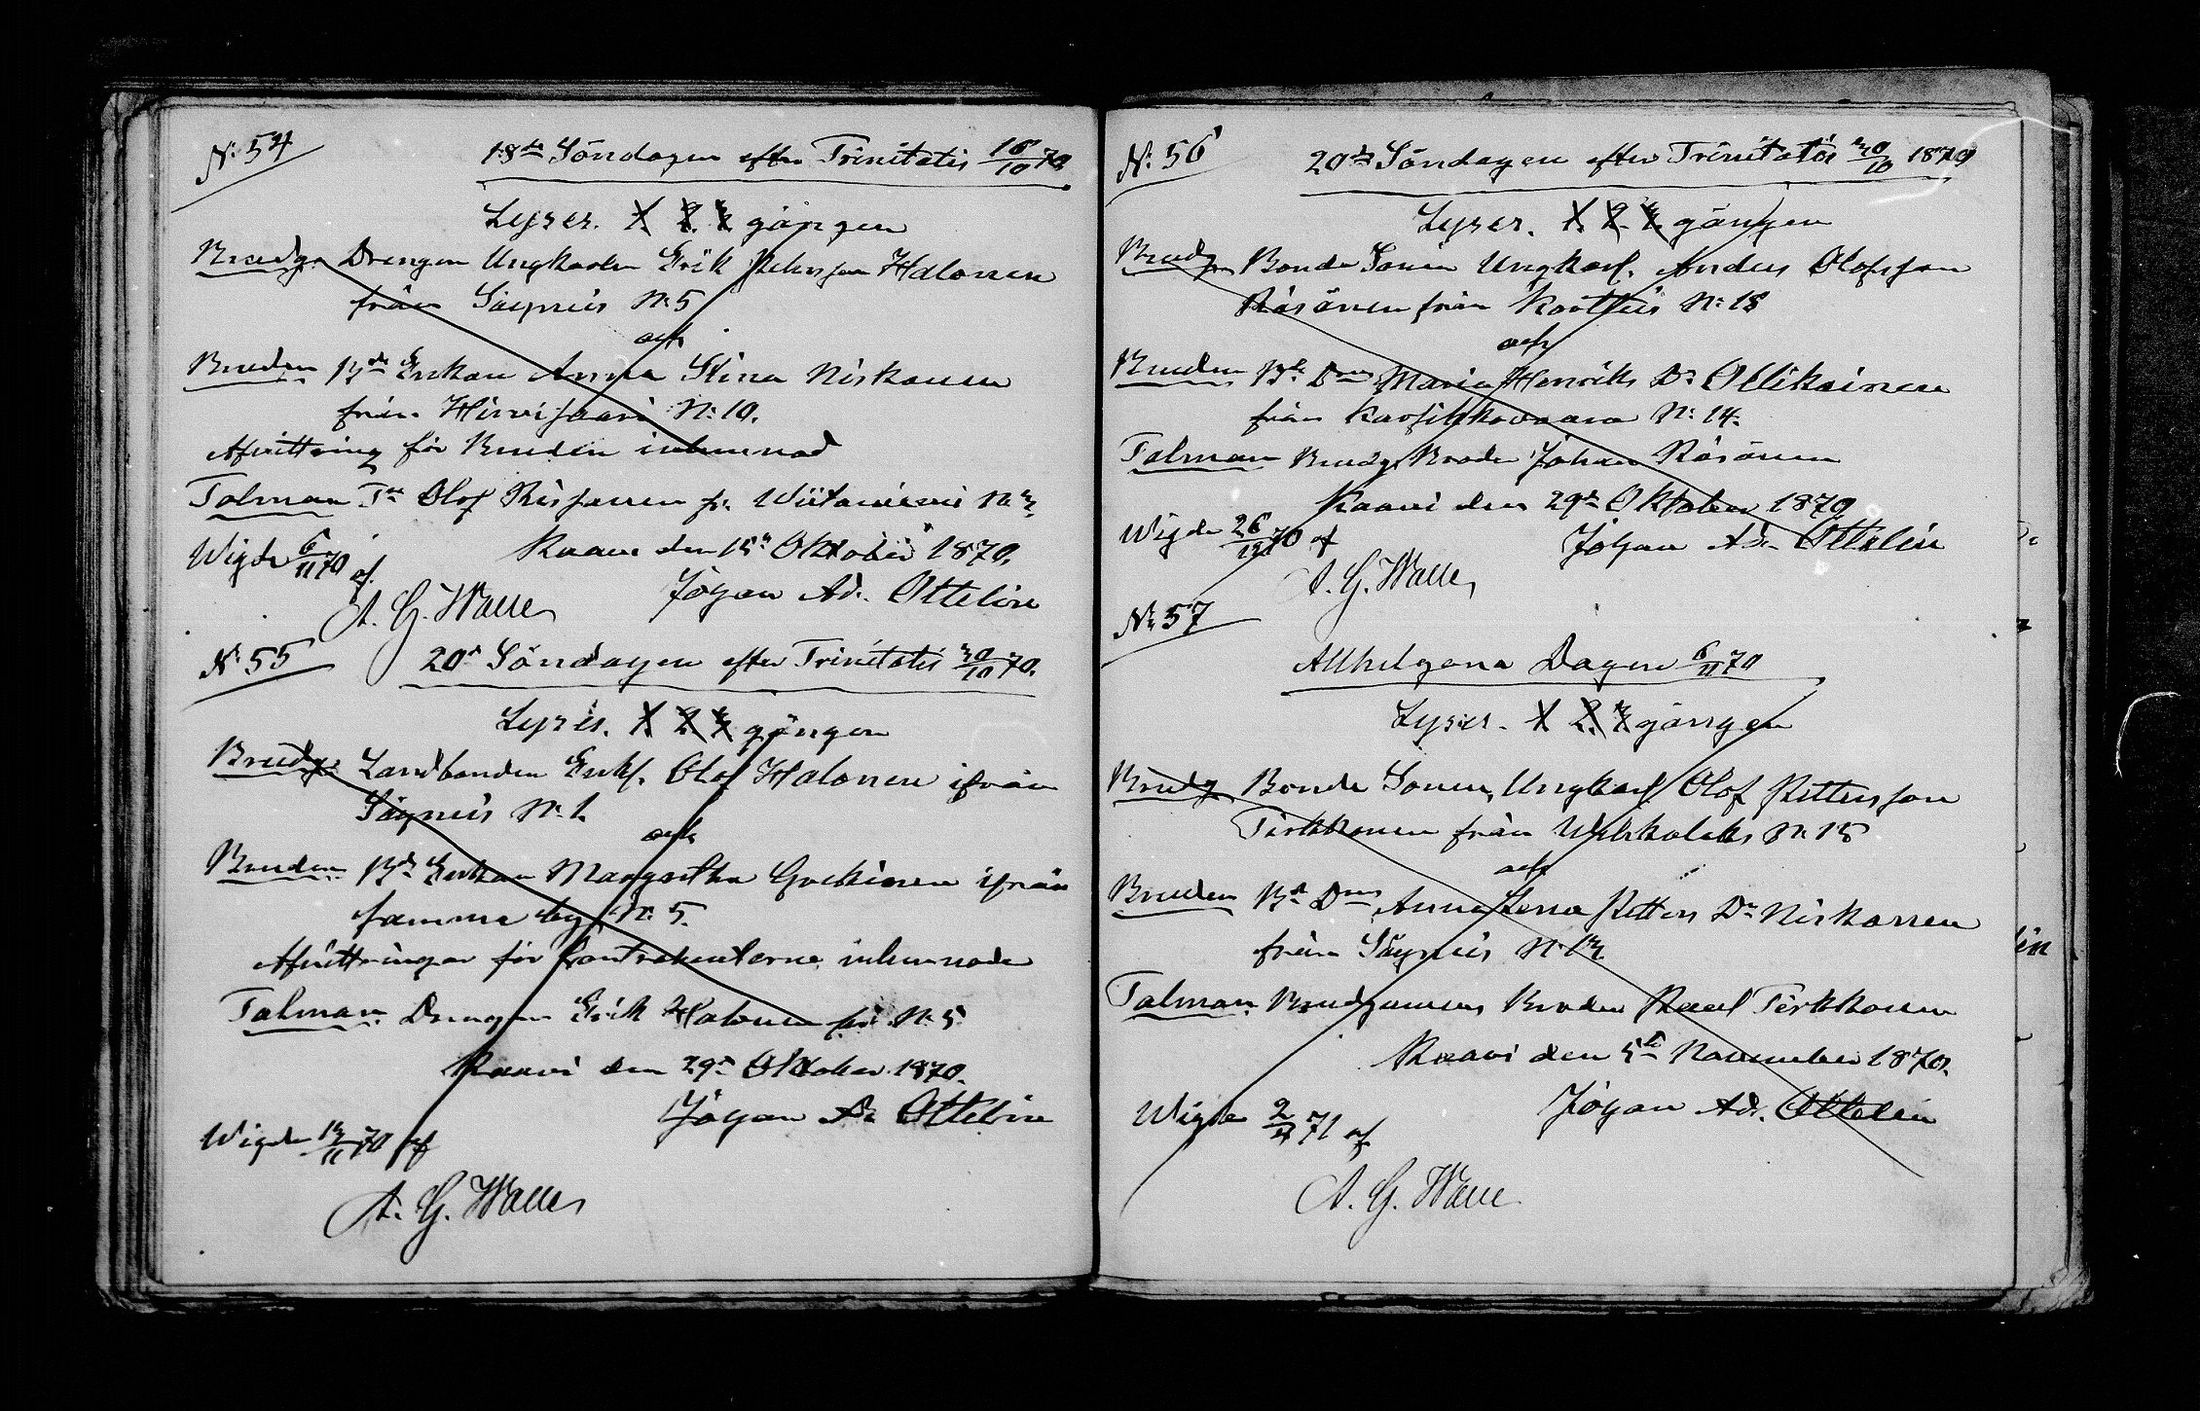 N: 54
18de Söndagen efter Trinitatis 16/10 70.
Lyses. 1 2. 3 gången
Brudg. Drengen Ungkarlen Erik Petersson Halonen
från Säyneis N: 5
och
Bruden Bd Enkan Anna Stina Niskanen
från Hirvisaari N: 10.
Afvittring för Bruden inlemnad
Talman Olof Ris fr. Wiitaniemi N: 3
Kaavi den 15 Oktober 1870.
Wigde 6/11 70 af.
Johan Ad. Ottelin
A. G. Walle
N: 55
20de Söndagen efter Trinitatis 30/10 70.
Lyses. 1. 2. 3 gången
Brudg. Landbonden Enkl. Olof Halonen ifrån
Säyneis N: 1.
och
Bruden Bd Enkan Margaretha ifrån
samma by N: 5.
Afvittringar för Contrahenterne inlemnade
Talman. Drengen Erik Halonen fr. N: 5
Kaavi den 29de Oktober 1870.
Johan Ad Ottelin
Wigde 13/11 70 af
A. G. Walle
N: 56
20de Söndagen efter Trinitatis 30/10 1870
Lyses. 1. 2. 3. gången
Brudg. Bonde Sonen Ungkarl. Anders Olofsson
Räsänen från Kortteis N: 18
och
Bruden Bd Dren Maria Henriks Dr Ollikainen
från Karsikkovaara N: 14.
Talman Brudg. Broder Johan Räsänen
Kaavi den 29de Oktober 1870
Wigde 26/12 70 af
Johan Ad. Ottelin
A. G. Walle
N: 57
Allhelgona Dagen 6/11 70
Lyses. 1 2. 3 gången
Brudg Bonde Sonen, Ungkarl Olof Pettersson
Tirkkonen från N: 15
och
Bruden Bd Dren Anna Lena Petters Dr Niskanen
från Säyneis N: 13
Talman. Brudgummens Broder Paul Tirkkonen
Kaavi den 5te November 1870.
Johan Ad. Ottelin
Wigde 2/4 71 af
A. G. Walle